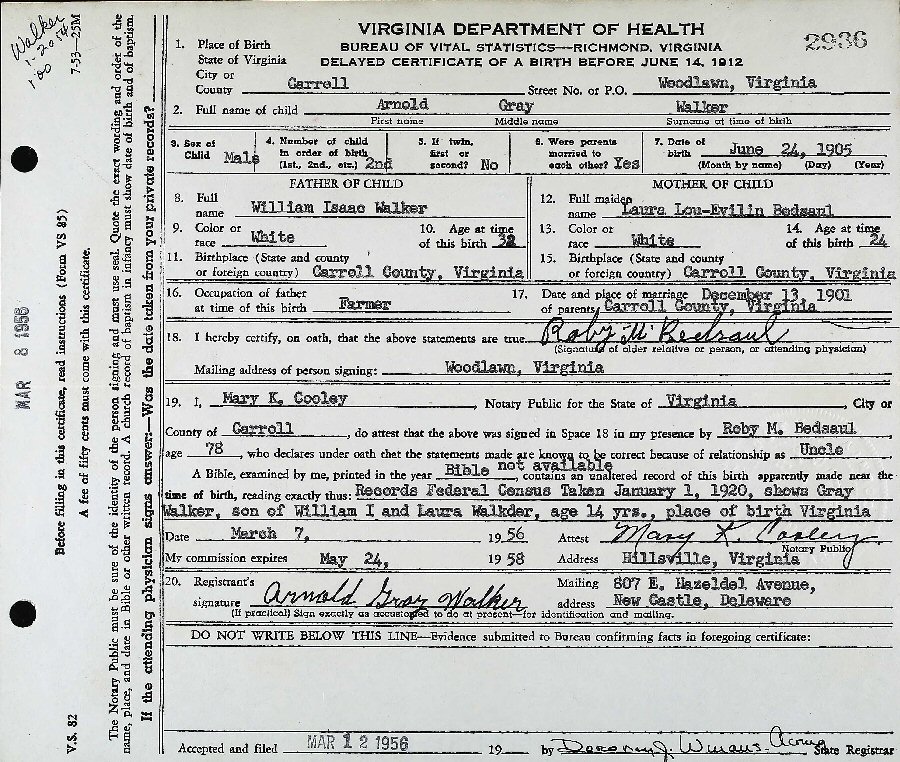 VIRGINIA DEPARTMENT OF HEALTH
BUREAU OF VITAL STATISTICS—RICHMOND, VIRGINIA
DELAYED CERTIFICATE OF A BIRTH BEFORE JUNE 14, 1912
2936
1. Place of Birth
State of Virginia
City or
County Carroll Street No. or P.O. Woodlawn, Virginia
2. Full name of child Arnold Gray Walker
First name Middle name Surname at time of birth
3. Sex of Child Male
4. Number of child in order of birth (1st, 2nd, etc.) 2nd
5. If twin, first or second? No
6. Were parents married to each other? Yes
7. Date of birth June 24, 1905
(Month by name) (Day) (Year)
FATHER OF CHILD
8. Full name William Isaac Walker
9. Color or race White
10. Age at time of this birth 32
11. Birthplace (State and county or foreign country) Carroll County, Virginia
MOTHER OF CHILD
12. Full maiden name Laura Lou-Evilin Bedsaul
13. Color or race White
14. Age at time of this birth 24
15. Birthplace (State and county or foreign country) Carroll County, Virginia
16. Occupation of father at time of this birth Farmer
17. Date and place of marriage of parents December 13 1901 Carroll County, Virginia
18. I hereby certify, on oath, that the above statements are true. Roby M Bedsaul
(Signature of older relative or person, or attending physician)
Mailing address of person signing: Woodlawn, Virginia
19. I, Mary K. Cooley, Notary Public for the State of Virginia, City or
County of Carroll, do attest that the above was signed in Space 18 in my presence by Roby M. Bedsaul,
age 78, who declares under oath that the statements made are known to be correct because of relationship as Uncle
A Bible, examined by me, printed in the year Bible not available, contains an unaltered record of this birth apparently made near the
time of birth, reading exactly thus: Records Federal Census Taken January 1, 1920, shows Gray
Walker, son of William I and Laura Walkder, age 14 yrs., place of birth Virginia
Date March 7, 1956 Attest Mary K. Cooley
Notary Public
My commission expires May 24, 1958 Address Hillsville, Virginia
20. Registrant's signature Arnold Gray Walker
(If practical) Sign exactly as accustomed to do at present—for identification and mailing.
Mailing address 807 E. Hazeldel Avenue,
New Castle, Deleware
DO NOT WRITE BELOW THIS LINE—Evidence submitted to Bureau confirming facts in foregoing certificate:
Accepted and filed MAR 12 1956 19 by Acting State Registrar
Walker
1-2054
1.00
7-53—25M
MAR 8 1956
Before filling in this certificate, read instructions (Form VS 85)
A fee of fifty cents must come with this certificate.
V.S. 82
The Notary Public must be sure of the identity of the person signing and must use seal. Quote the exact wording and order of the
name, place, and date in Bible or other written record. A church record of baptism in infancy must show date of birth and of baptism.
If the attending physician signs answer:—Was the date taken from your private records?